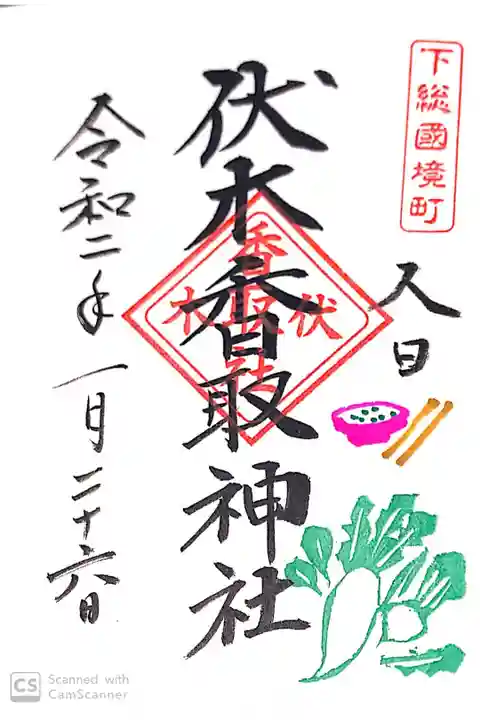 下総國境町
人日
伏木香取神社
伏木
令和二年一月二十六日
CS Scanned with
CamScanner